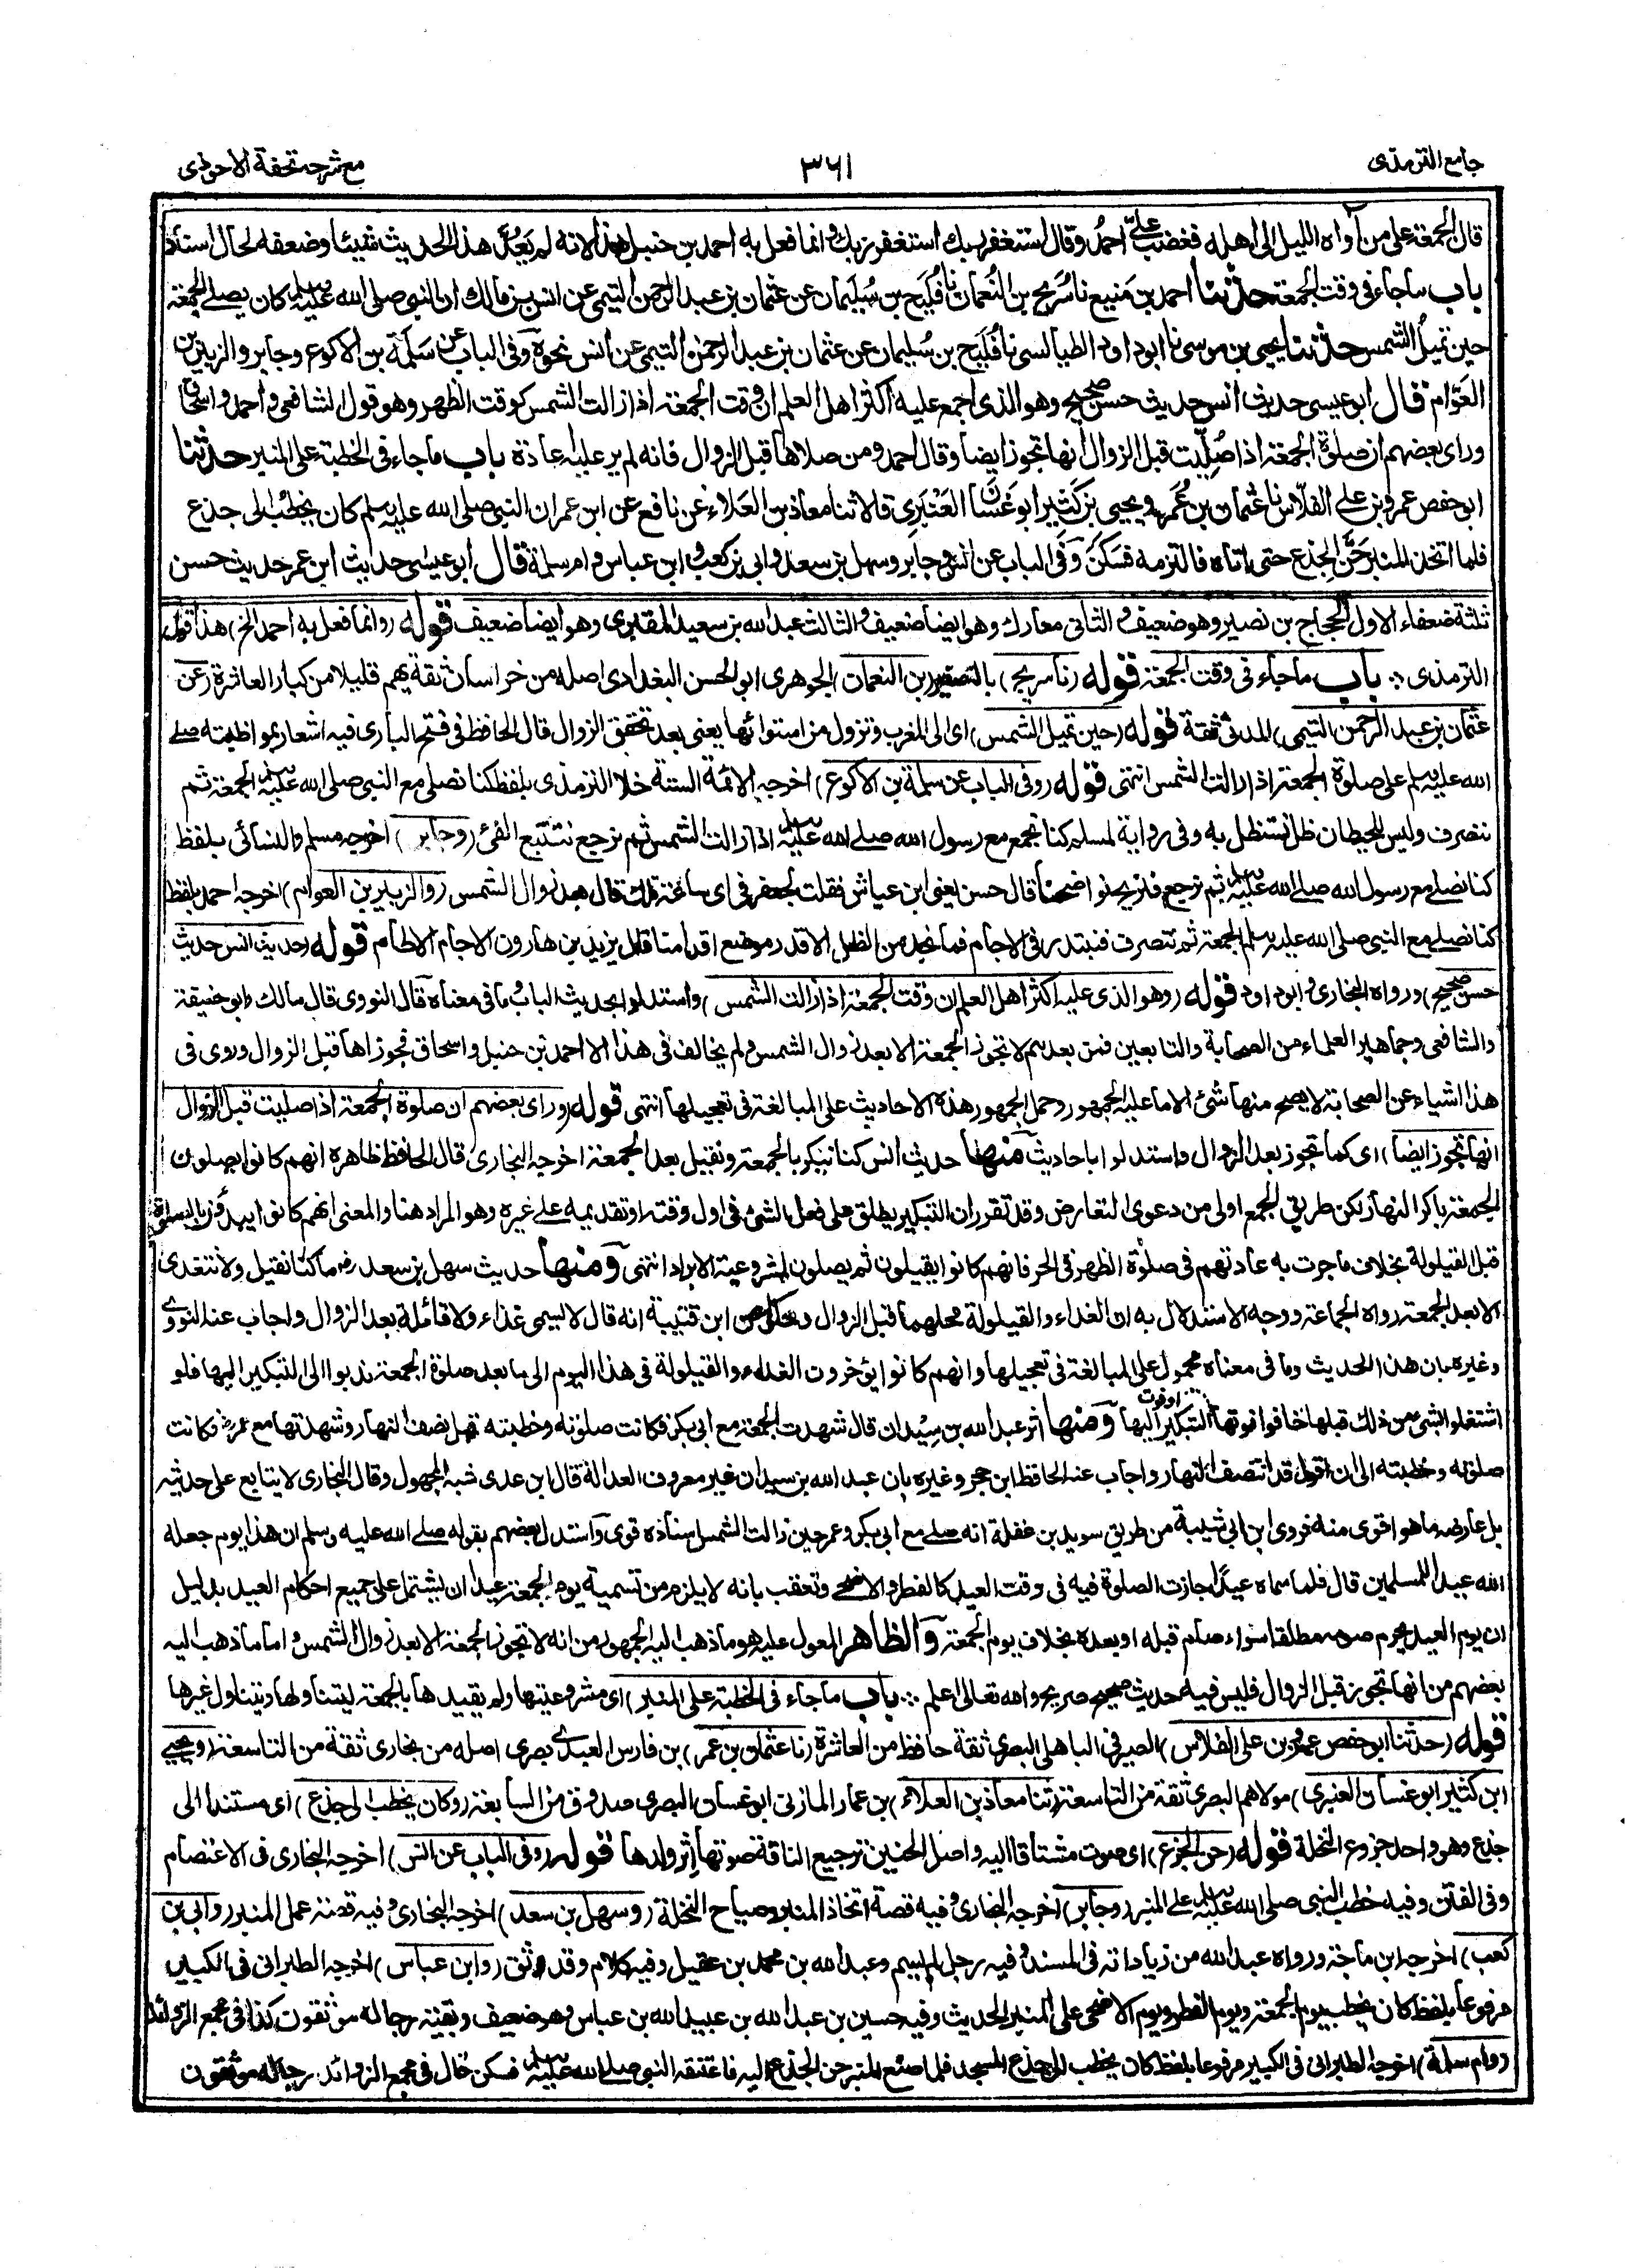 جامع الترمذی
۳۶۱
مع شرحہ تحفۃ الاحوذی
قال الجمعة علی من آواه اللیل الی اهله فغضب علیّ احمدُ وقال استغفر ربك استغفر ربك وانما فعل به احمد بن حنبل هذا لانه لم یَعُدَّ هذا الحدیث شیئا وضعفه لحال اسناده
باب ماجاء فی وقت الجمعة حدثنا احمد بن مَنیع نا سُرَیج بن النُعمان نا فُلَیح بن سُلَیمان عن عثمان بن عبد الرحمن التیمی عن انس بن مالك ان النبی صلی الله علیه وسلم کان یصلی الجمعة
حین تمیلُ الشمس حدثنا یحیی بن موسی نا ابوداود الطیالسی نا فُلَیح بن سُلیمان عن عثمان بن عبد الرحمن التیمی عن انس نحوه وفی الباب عن سَلَمَة بن الاکوع وجابر والزبیر بن
العَوّام قال ابو عیسی حدیث انس حدیث حسن صحیح وهو الذی اجمع علیه اکثر اهل العلم ان وقت الجمعة اذا زالت الشمس کوقت الظهر وهو قول الشافعی واحمد واسحاق
ورای بعضهم ان صلوة الجمعة اذا صُلِّیت قبل الزوال انها تجوز ایضا وقال احمد ومن صلاها قبل الزوال فانه لم یر علیه اعادة باب ماجاء فی الخطبة علی المنبر حدثنا
ابو حفص عمرو بن علی الفلّاس نا عثمان بن عُمَر ویحیی بن کثیر ابو غَسّان العَنْبَرِی قالا ثنا معاذ بن العَلاء عن نافع عن ابن عمر ان النبی صلی الله علیه وسلم کان یخطب الی جذع
فلما اتخذ المنبر حَنَّ الجذع حتی اتاه فالتزمه فسکن وفی الباب عن انس وجابر وسهل بن سعد وابی بن کعب وابن عباس وام سلمة قال ابو عیسی حدیث ابن عمر حدیث حسن
ثلثة ضعفاء الاول الحجاج بن نصیر وهو ضعیف والثانی معارك وهو ایضا ضعیف والثالث عبد الله بن سعید المقبری وهو ایضا ضعیف قوله (وانما فعل به احمد الخ) هذا قول
الترمذی ؞ باب ماجاء فی وقت الجمعة قوله (نا سریج) بالتصغیر (بن النعمان) الجوهری ابو الحسن البغدادی اصله من خراسان ثقة یهم قلیلا من کبار العاشرة (عن
عثمان بن عبد الرحمن التیمی) المدنی ثقة قوله (حین تمیل الشمس) ای الی المغرب وتزول من استوائها یعنی بعد تحقق الزوال قال الحافظ فی فتح الباری فیه اشعار بمواظبته صلے
الله علیه وسلم علی صلوة الجمعة اذا زالت الشمس انتهی قوله (وفی الباب عن سلمة بن الاکوع) اخرجه الائمة الستة خلا الترمذی بلفظ کنا نصلی مع النبی صلی الله علیه وسلم الجمعة ثم
ننصرف ولیس للحیطان ظل نستظل به وفی روایة لمسلم کنا نجمع مع رسول الله صلے الله علیه وسلم اذا زالت الشمس ثم نرجع نتتبع الفئ (وجابر) اخرجه مسلم والنسائی بلفظ
کنا نصلی مع رسول الله صلے الله علیه وسلم ثم نرجع فنریح نواضحنا قال حسن یعنی ابن عیاش فقلت لجعفر فی ای ساعة تلك قال عند زوال الشمس (والزبیر بن العوام) اخرجه احمد بلفظ
کنا نصلے مع النبی صلی الله علیه وسلم الجمعة ثم ننصرف فنبتدر فی الاجام فما نجد من الظل الا قدر موضع اقدامنا قال یزید بن هارون الاجام الاطام قوله (حدیث انس حدیث
حسن صحیح) ورواه البخاری وابو داود قوله (وهو الذی علیه اکثر اهل العلم ان وقت الجمعة اذا زالت الشمس) واستدلوا بحدیث الباب وما فی معناه قال النووی قال مالك وابوحنیفة
والشافعی وجماهیر العلماء من الصحابة والتابعین فمن بعدهم لا تجوز الجمعة الا بعد زوال الشمس ولم یخالف فی هذا الا احمد بن حنبل واسحاق فجوزاها قبل الزوال وروی فی
هذا اشیاء عن الصحابة لا یصح منها شئ الا ما علیه الجمهور وحمل الجمهور هذه الاحادیث علی المبالغة فی تعجیلها انتهی قوله (ورای بعضهم ان صلوة الجمعة اذا صلیت قبل الزوال
انها تجوز ایضا) ای کما تجوز بعد الزوال واستدلوا باحادیث منها حدیث انس کنا نبکر بالجمعة ونقیل بعد الجمعة اخرجه البخاری قال الحافظ ظاهره انهم کانوا یصلون
الجمعة باکر النهار لکن طریق الجمع اولی من دعوی التعارض وقد تقرر ان التبکیر یطلق علی فعل الشئ فی اول وقته او تقدیمه علے غیره وهو المراد هنا والمعنی انهم کانوا یبدؤن بالصلوة
قبل القیلولة بخلاف ما جرت به عادتهم فی صلوة الظهر فی الحر فانهم کانوا یقیلون ثم یصلون لمشروعیة الابراد انتهی ومنها حدیث سهل بن سعد رض ما کنا نقیل ولا نتغدی
الا بعد الجمعة رواه الجماعة ووجه الاستدلال به ان الغداء والقیلولة محلهما قبل الزوال وحکی عن ابن قتیبة انه قال لا یسمی غذاء ولا قائلة بعد الزوال واجاب عنه النووی
وغیره بان هذا الحدیث وما فی معناه محمول علی المبالغة فی تعجیلها وانهم کانوا یؤخرون الغداء والقیلولة فی هذا الیوم الی ما بعد صلوة الجمعة ندبوا الی التبکیر الیها فلو
اشتغلوا بشئ من ذلك قبلها خافوا فوتها او فوت التبکیر الیها ومنها اثر عبد الله بن سِیْدان قال شهدت الجمعة مع ابی بکر فکانت صلوته وخطبته قبل نصف النهار وشهدتها مع عمر رض فکانت
صلوته وخطبته الی ان اقول قد انتصف النهار واجاب عنه الحافظ ابن حجر وغیره بان عبد الله بن سیدان غیر معروف العدالة قال ابن عدی شبه المجهول وقال البخاری لا یتابع علی حدیثه
بل عارضه ما هو اقوی منه فروی ابن ابی شیبة من طریق سوید بن غفلة انه صلے مع ابی بکر وعمر حین زالت الشمس اسناده قوی واستدل بعضهم بقوله صلے الله علیه وسلم ان هذا یوم جعله
الله عیدا للمسلمین قال فلما سماه عیدا جازت الصلوة فیه فی وقت العید کالفطر والاضحے وتعقب بانه لا یلزم من تسمیة یوم الجمعة عیدا ان یشتمل علی جمیع احکام العید بدلیل
ان یوم العید یحرم صومه مطلقا سواء صام قبله او بعده بخلاف یوم الجمعة والظاهر المعول علیه هو ما ذهب الیه الجمهور من انه لا تجوز الجمعة الا بعد زوال الشمس واما ما ذهب الیه
بعضهم من انها تجوز قبل الزوال فلیس فیه حدیث صحیح صریح والله تعالی اعلم ؞ باب ماجاء فی الخطبة علی المنبر) ای مشروعیتها ولم یقیدها بالجمعة لیتناولها ویتناول غیرها
قوله (حدثنا ابو حفص عمرو بن علی الفلاس) الصیرفی الباهلی البصری ثقة حافظ من العاشرة (نا عثمان بن عمر) بن فارس العبدی بصری اصله من بخاری ثقة من التاسعة (ویحیے
ابن کثیر ابو غسان العنبری) مولاهم البصری ثقة من التاسعة (ثنا معاذ بن العلاء) بن عمار المازنی ابو غسان البصری صدوق من السابعة (وکان یخطب الی جذع) ای مستندا الی
جذع وهو واحد جزوع النخلة قوله (حن الجزع) ای صوت مشتاقا الیه واصل الحنین ترجیع الناقة صوتها اثر ولدها قوله (وفی الباب عن انس) اخرجه البخاری فی الاعتصام
وفی الفتن وفیه خطب النبی صلی الله علیه وسلم علے المنبر (وجابر) اخرجه البخاری وفیه قصة اتخاذ المنبر وصیاح النخلة (وسهل بن سعد) اخرجه البخاری وفیه قصة عمل المنبر (وابی بن
کعب) اخرجه ابن ماجة ورواه عبد الله من زیاداته فی المسند وفیه رجل لم یسم وعبد الله بن محمد بن عقیل وفیه کلام وقد وثق (وابن عباس) اخرجه الطبرانی فی الکبیر
مرفوعا بلفظ کان یخطب یوم الجمعة ویوم الفطر ویوم الاضحی علی المنبر الحدیث وفیه حسین بن عبد الله بن عبید الله بن عباس وهو ضعیف وبقیة رجاله موثقون کذا فی مجمع الزوائد
(وام سلمة) اخرجه الطبرانی فی الکبیر مرفوعا بلفظ کان یخطب الی جذع المسجد فلما صنع المنبر حن الجذع الیه فاعتنقه النبی صلے الله علیه وسلم فسکن قال فی مجمع الزوائد رجاله موثقون